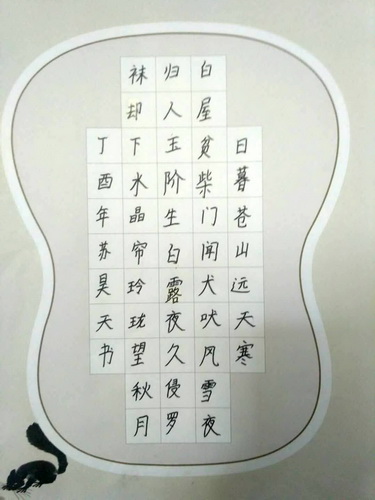 日暮苍山远天寒
白屋贫柴门闻犬吠风雪夜
归人玉阶生白露夜久侵罗
袜却下水晶帘玲珑望秋月
丁酉年苏昊天书